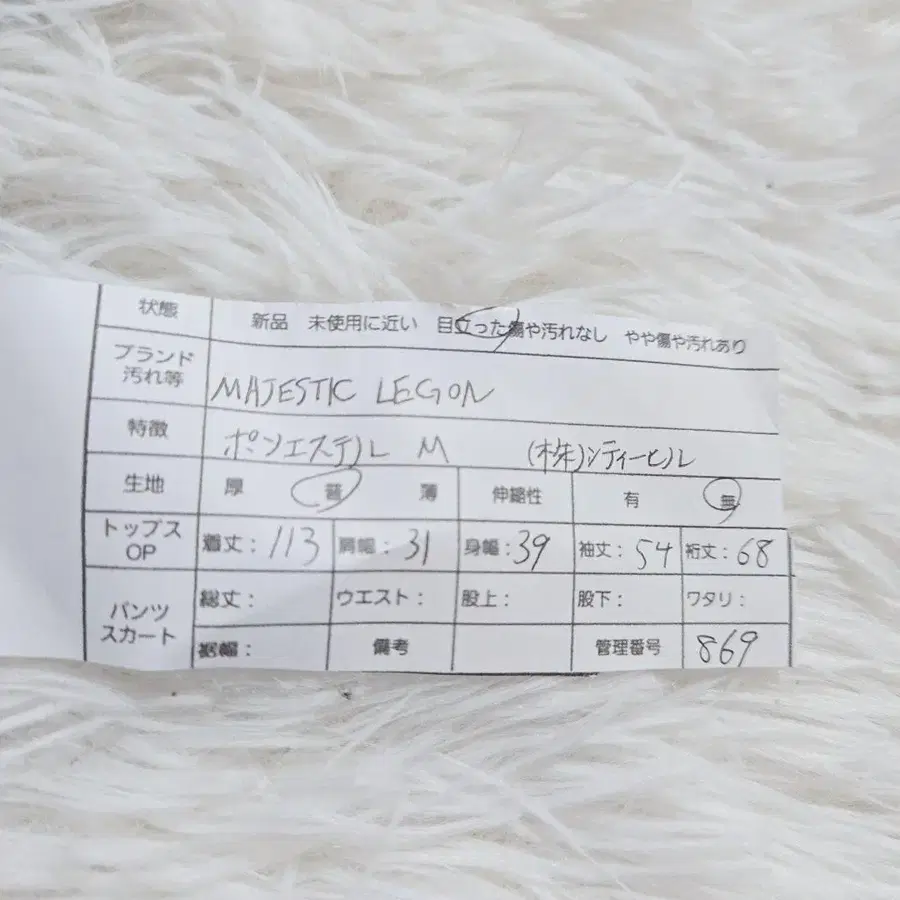 状態 新品 未使用に近い 目立った傷や汚れなし やや傷や汚れあり
ブランド
汚れ等 MAJESTIC LEGON
特徴 ポリエステル M (株)シティーヒル
生地 厚 普 薄 伸縮性 有 無
トップス
OP 着丈:113 肩幅:31 身幅:39 袖丈:54 裄丈:68
パンツ
スカート 総丈: ウエスト: 股上: 股下: ワタリ:
裾幅: 備考 管理番号 869